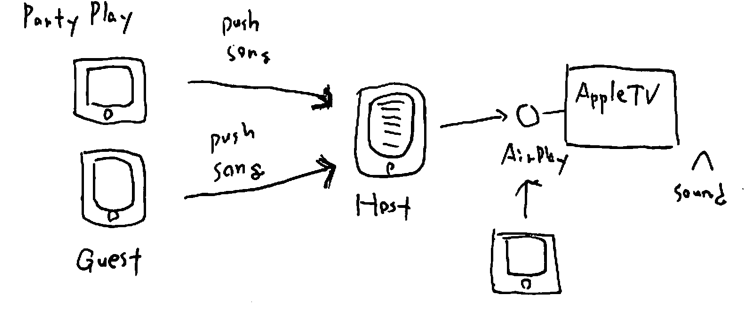 Party Play
push
song
push
song
Guest
Host
AirPlay
AppleTV
sound